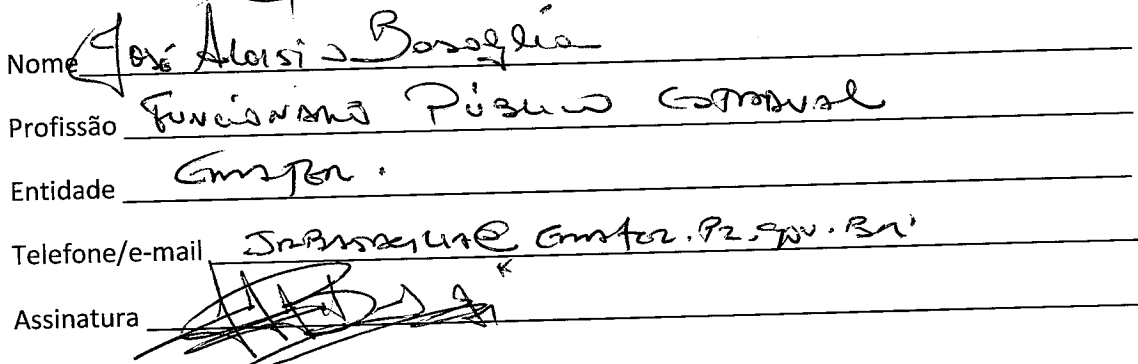 Nome José Aloisio Basaglia
Profissão Funcionário Público Estadual
Entidade Emater.
Telefone/e-mail @emater.pr.gov.br
Assinatura